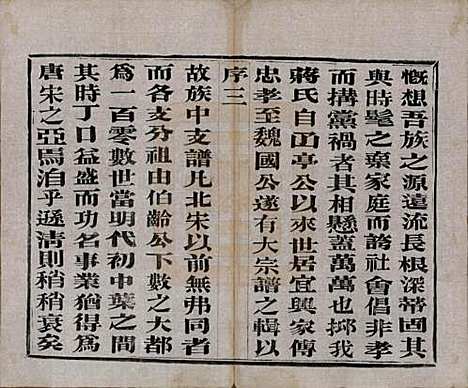 慨想吾族之源遠流長根深蒂固其
與時髦之棄家庭而誇社會倡非孝
而搆黨禍者其相懸蓋萬萬也抑我
蔣氏自㘝亭公以來世居宜興家傳
忠孝至魏國公遂有大宗譜之輯以
序三
故族中支譜凡北宋以前無弗同者
而各支分祖由伯齡公下數之大都
為一百零數世當明代初中葉之間
其時丁口益盛而功名事業猶得為
唐宋之亞焉洎乎遜清則稍稍衰矣